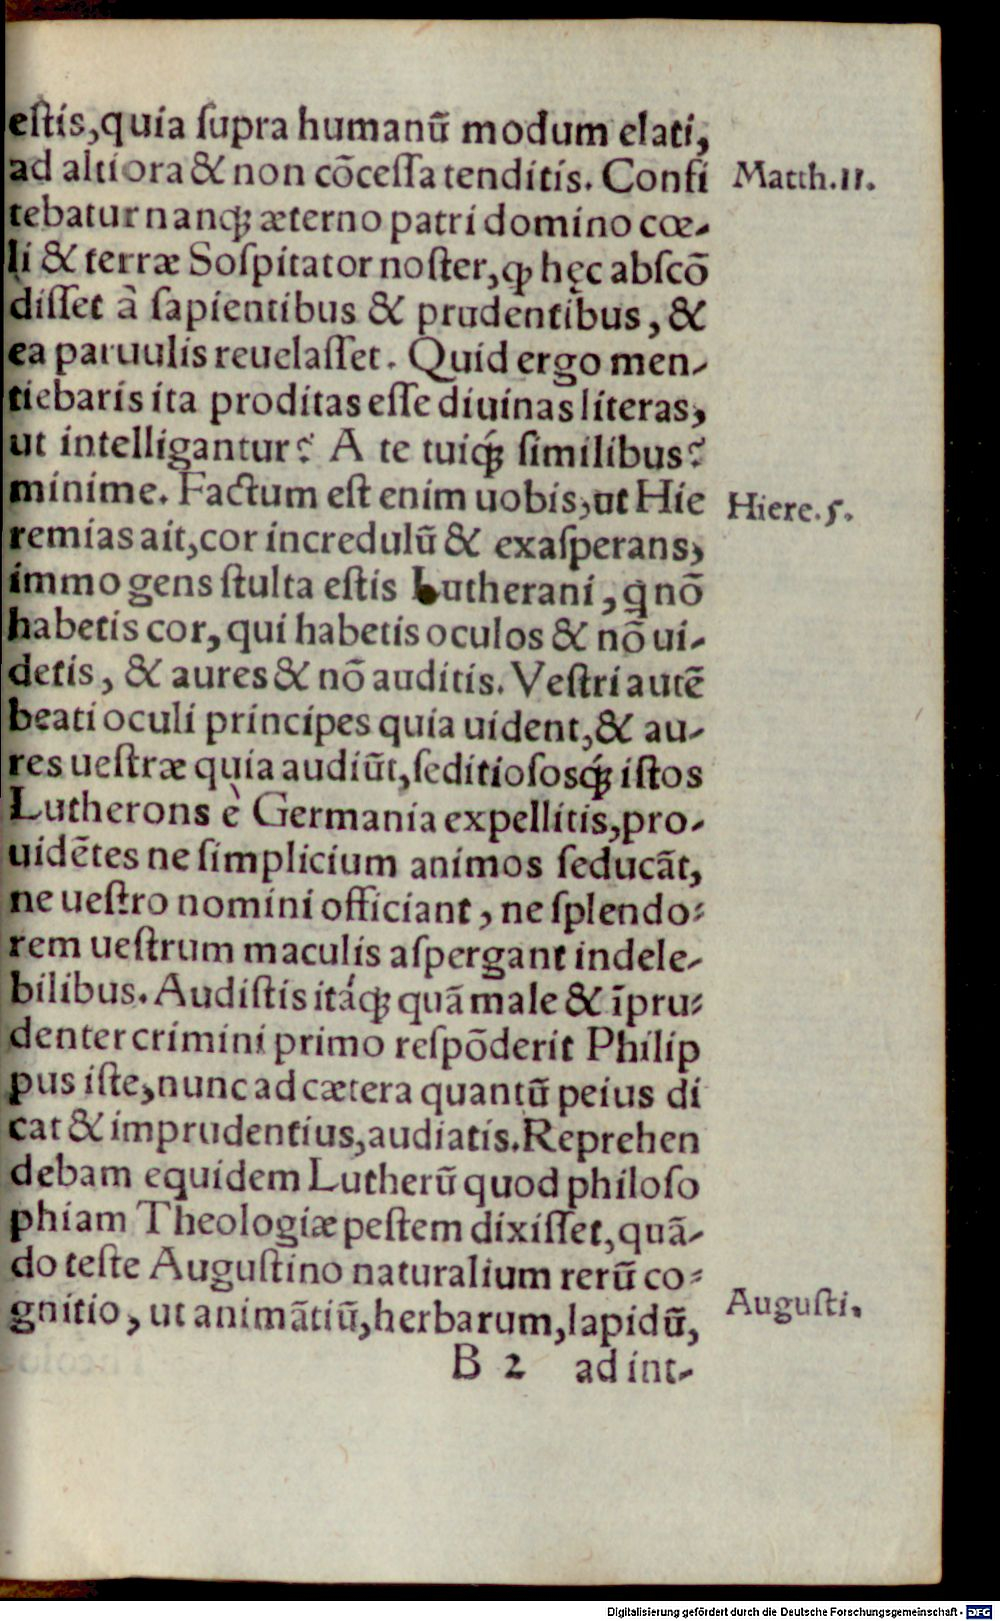 eſtis,quia ſupra humanũ modum elati,
ad altiora & non cõceſſa tenditis. Confi
Matth.11.
tebatur nanqꝫ æterno patri domino cœ-
li & terræ Soſpitator noſter, ꝙ hęc abſcõ
diſſet à ſapientibus & prudentibus, &
ea paruulis reuelaſſet. Quid ergo men-
tiebaris ita proditas eſſe diuinas literas,
ut intelligantur? A te tuiqꝫ́ ſimilibus?
minime. Factum eſt enim uobis,ut Hie
Hiere.5.
remias ait,cor incredulũ & exaſperans,
immo gens ſtulta eſtis Lutherani, ꝗ nõ
habetis cor, qui habetis oculos & nõ ui-
detis, & aures & nõ auditis. Veſtri autẽ
beati oculi principes quia uident,& au-
res ueſtræ quia audiũt,ſeditioſosqꝫ́ iſtos
Lutherons è Germania expellitis,pro-
uidẽtes ne ſimplicium animos ſeducãt,
ne ueſtro nomini officiant, ne ſplendo-
rem ueſtrum maculis aſpergant indele-
bilibus. Audiſtis itáqꝫ quã male & ĩpru-
denter crimini primo reſpõderit Philip
pus iſte,nunc ad cætera quantũ peius di
cat & imprudentius,audiatis. Reprehen
debam equidem Lutherũ quod philoſo
phiam Theologiæ peſtem dixiſſet,quã-
do teſte Auguſtino naturalium rerũ co-
Auguſti.
gnitio, ut animãtiũ,herbarum,lapidũ,
B 2 ad int-
Digitalisierung gefördert durch die Deutsche Forschungsgemeinschaft - DFG